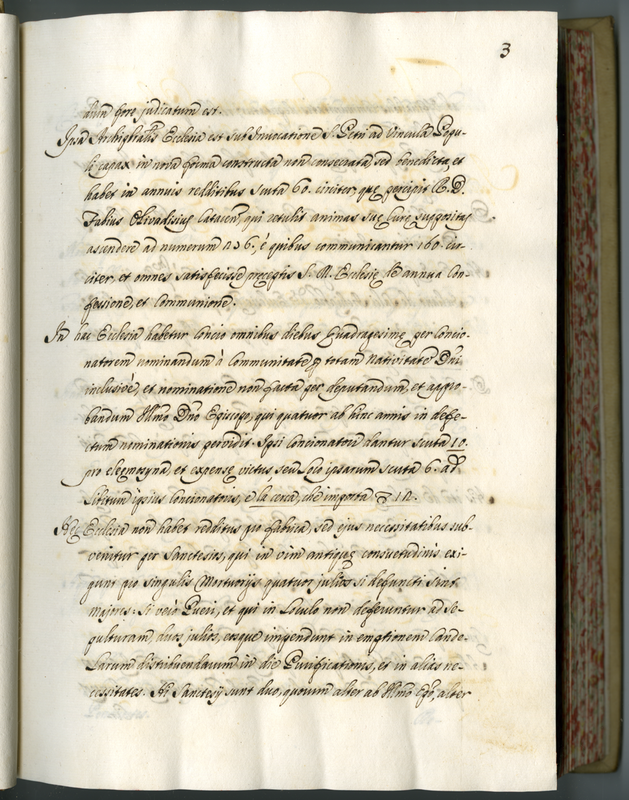 3
dum fore judicatum est.
Ipsa Archipbr̃alis Ecclesia est sub Invocatione S. Petri ad Vincula Popu-
li capax in nova forma constructa non consecrata, sed benedicta, et
habet in annuis redditibus scuta 60. circiter, que percipit R. D.
Fabius Olivadisius Cataceñ, qui retulit animas sue Cure suppositas
ascendere ad numerum 236, è quibus communicantur 160. cir-
citer, et omnes satisfecisse preceptis S. M. Eclesie de annua Con-
fessione, et Communione.
In hac Ecclesia habetur concio omnibus diebus Quadragesime per Concio-
natorem nominandum à Communitate p totam Nativitatem Dñi
inclusivè, et nominatione non facta per deputandum, et appro-
bandum Illmo Dno Episcopo, qui quatuor ab hinc annis in defe-
ctum nominationis providit. Ipsi Concionatori dantur scuta 10.
pro elemosyna, et expense victus, seu loco ipsarum scuta 6. ad
libitum ipsius Concionatoris, e la cerca, che importa 12.
Hec Ecclesia non habet redditus pro fabrica, sed ejus necessitatibus sub-
venitur per Sanctesios, qui in vim antique consuetudinis exi-
gunt pro singulis Mortuorijs quatuor julios si defuncti sint
majores: Si verò Pueri, et qui in Loculo non deferuntur ad se-
pulturam duos julios, eosque impendunt in emptionem Cande-
larum distribuendarum in die Purificationis, et in alias ne-
cessitates. Hi Sanctesij sunt duo, quorum alter ab Illmo Epo, alter